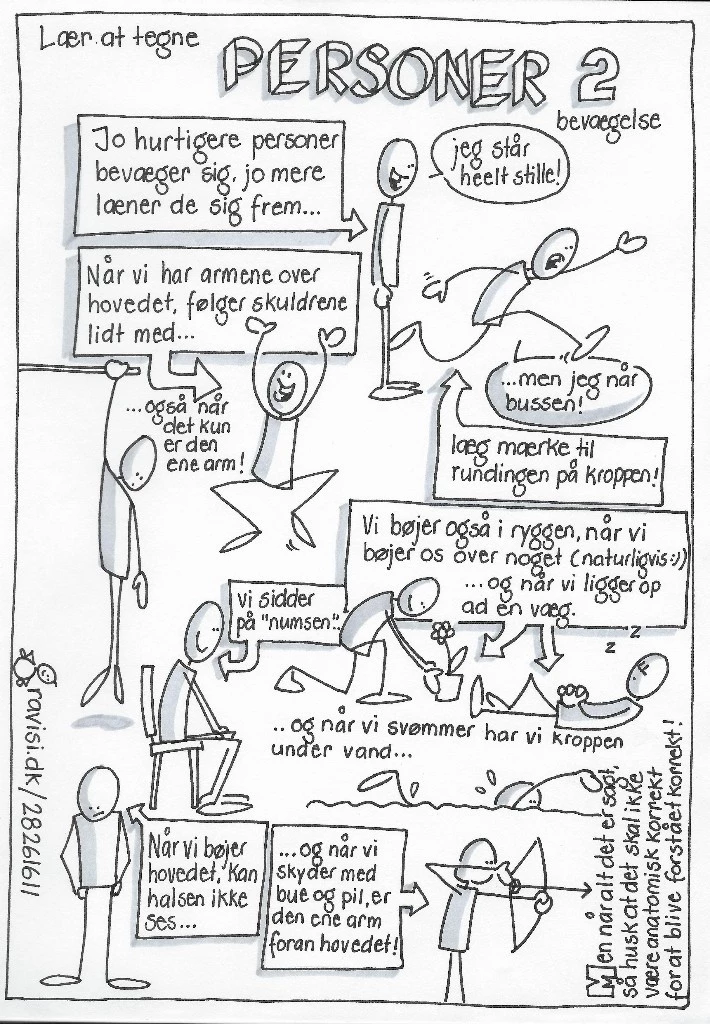 Lær at tegne
PERSONER 2
bevægelse
Jo hurtigere personer
bevæger sig, jo mere
læner de sig frem...
jeg står
heelt stille!
Når vi har armene over
hovedet, følger skuldrene
lidt med...
...også når
det kun
er den
ene arm!
...men jeg når
bussen!
læg mærke til
rundingen på kroppen!
Vi bøjer også i ryggen, når vi
bøjer os over noget (naturligvis:))
...og når vi ligger op
ad en væg.
vi sidder
på "numsen"..
z z
..og når vi svømmer har vi kroppen
under vand...
Når vi bøjer
hovedet, kan
halsen ikke
ses...
...og når vi
skyder med
bue og pil, er
den ene arm
foran hovedet!
Men når alt det er sagt,
så husk at det skal ikke
være anatomisk korrekt
for at blive forstået korrekt!
Gravisi.dk/28261611